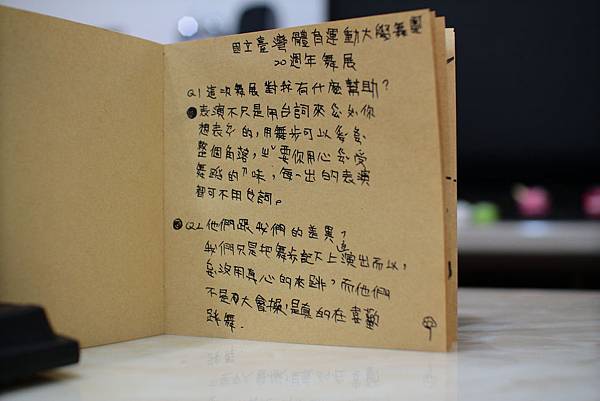 國立臺灣體育運動大學舞蹈
20週年舞展
Q1這次舞展對我有什麼幫助?
表演不只是用台詞來 如你
想表 的,用舞步可以
整個角落, 要你用心 受
舞蹈的 味,每一出的表演
都可不用台詞。
Q2他們跟我們的差異,
我們只是把舞步記下上 演出而以,
沒用真心的來跳,而他們
不是 大會操,是真的在喜歡
跳舞.